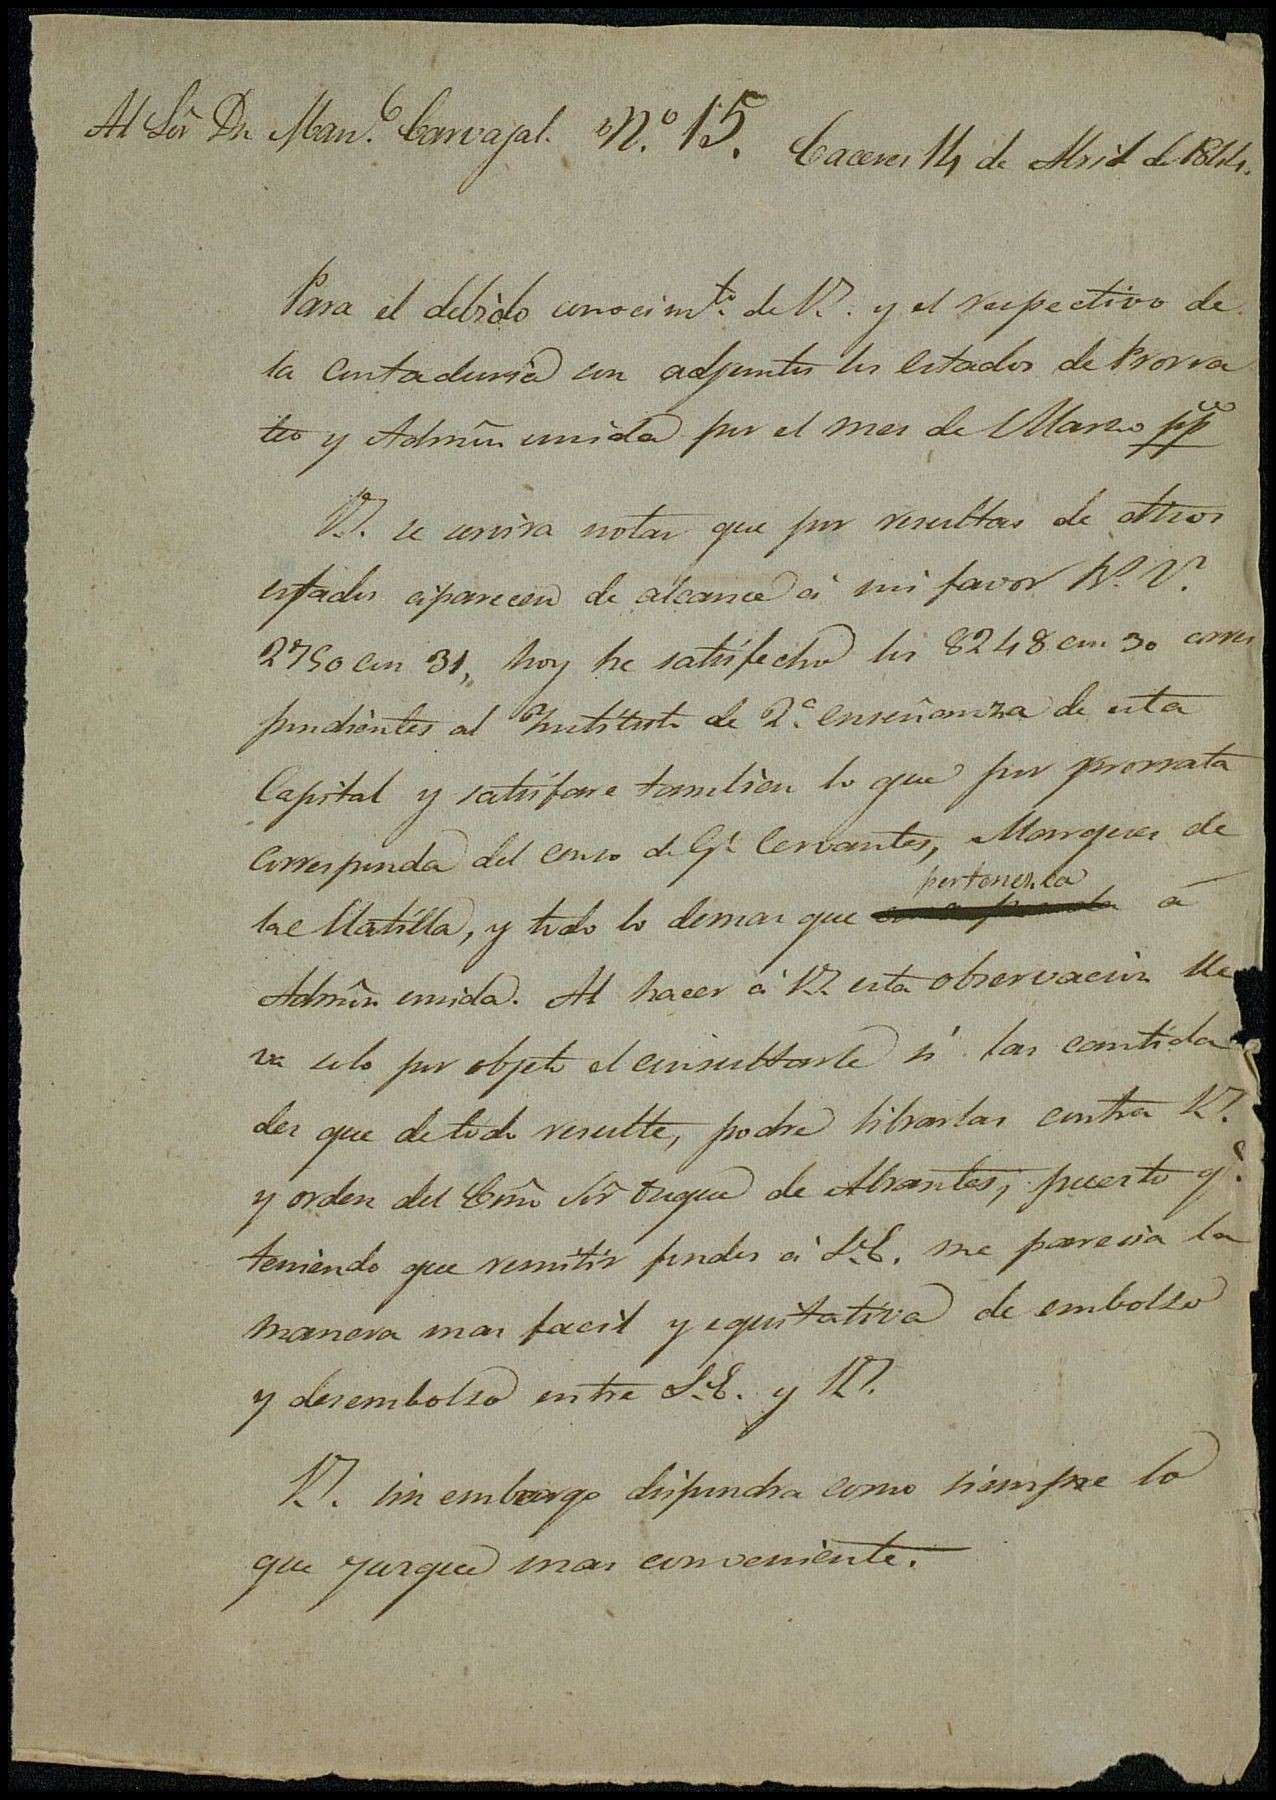 Al Sōr Dn Man.l Carvajal. N.º 15. Caceres 14 de Abril de 1844.
Para el debido conocim.to de V. y el respectivo de
la contaduria son adjuntos los estados de Prorra
teo y Admōn unida por el mes de Marzo pp.º
V. se servira notar que por resultas de dhos
estados aparecen de alcance á mi favor
2750 con 31, hoy he satisfecho los 8248 con 30 corres
pondientes al Instituto de 2.ª enseñanza de esta
Capital y satisfare tambien lo que por prorrata
corresponda del censo de Cervantes, Marques de
la Matilla, y todo lo demas que pertenezca á
Admōn unida. Al hacer á V. esta observacion lle
va solo por objeto el consultarle si las cantida
des que de todo resulte, podre librarlas contra V.
y orden del Ecmō Sōr Duque de Abrantes, puesto q.e
teniendo que remitir fondos á S.E. me parecia la
manera mas facil y equitativa de embolso
y desembolso entre S.E. y V.
V. sin embargo dispondra como siempre lo
que juzgue mas conveniente.